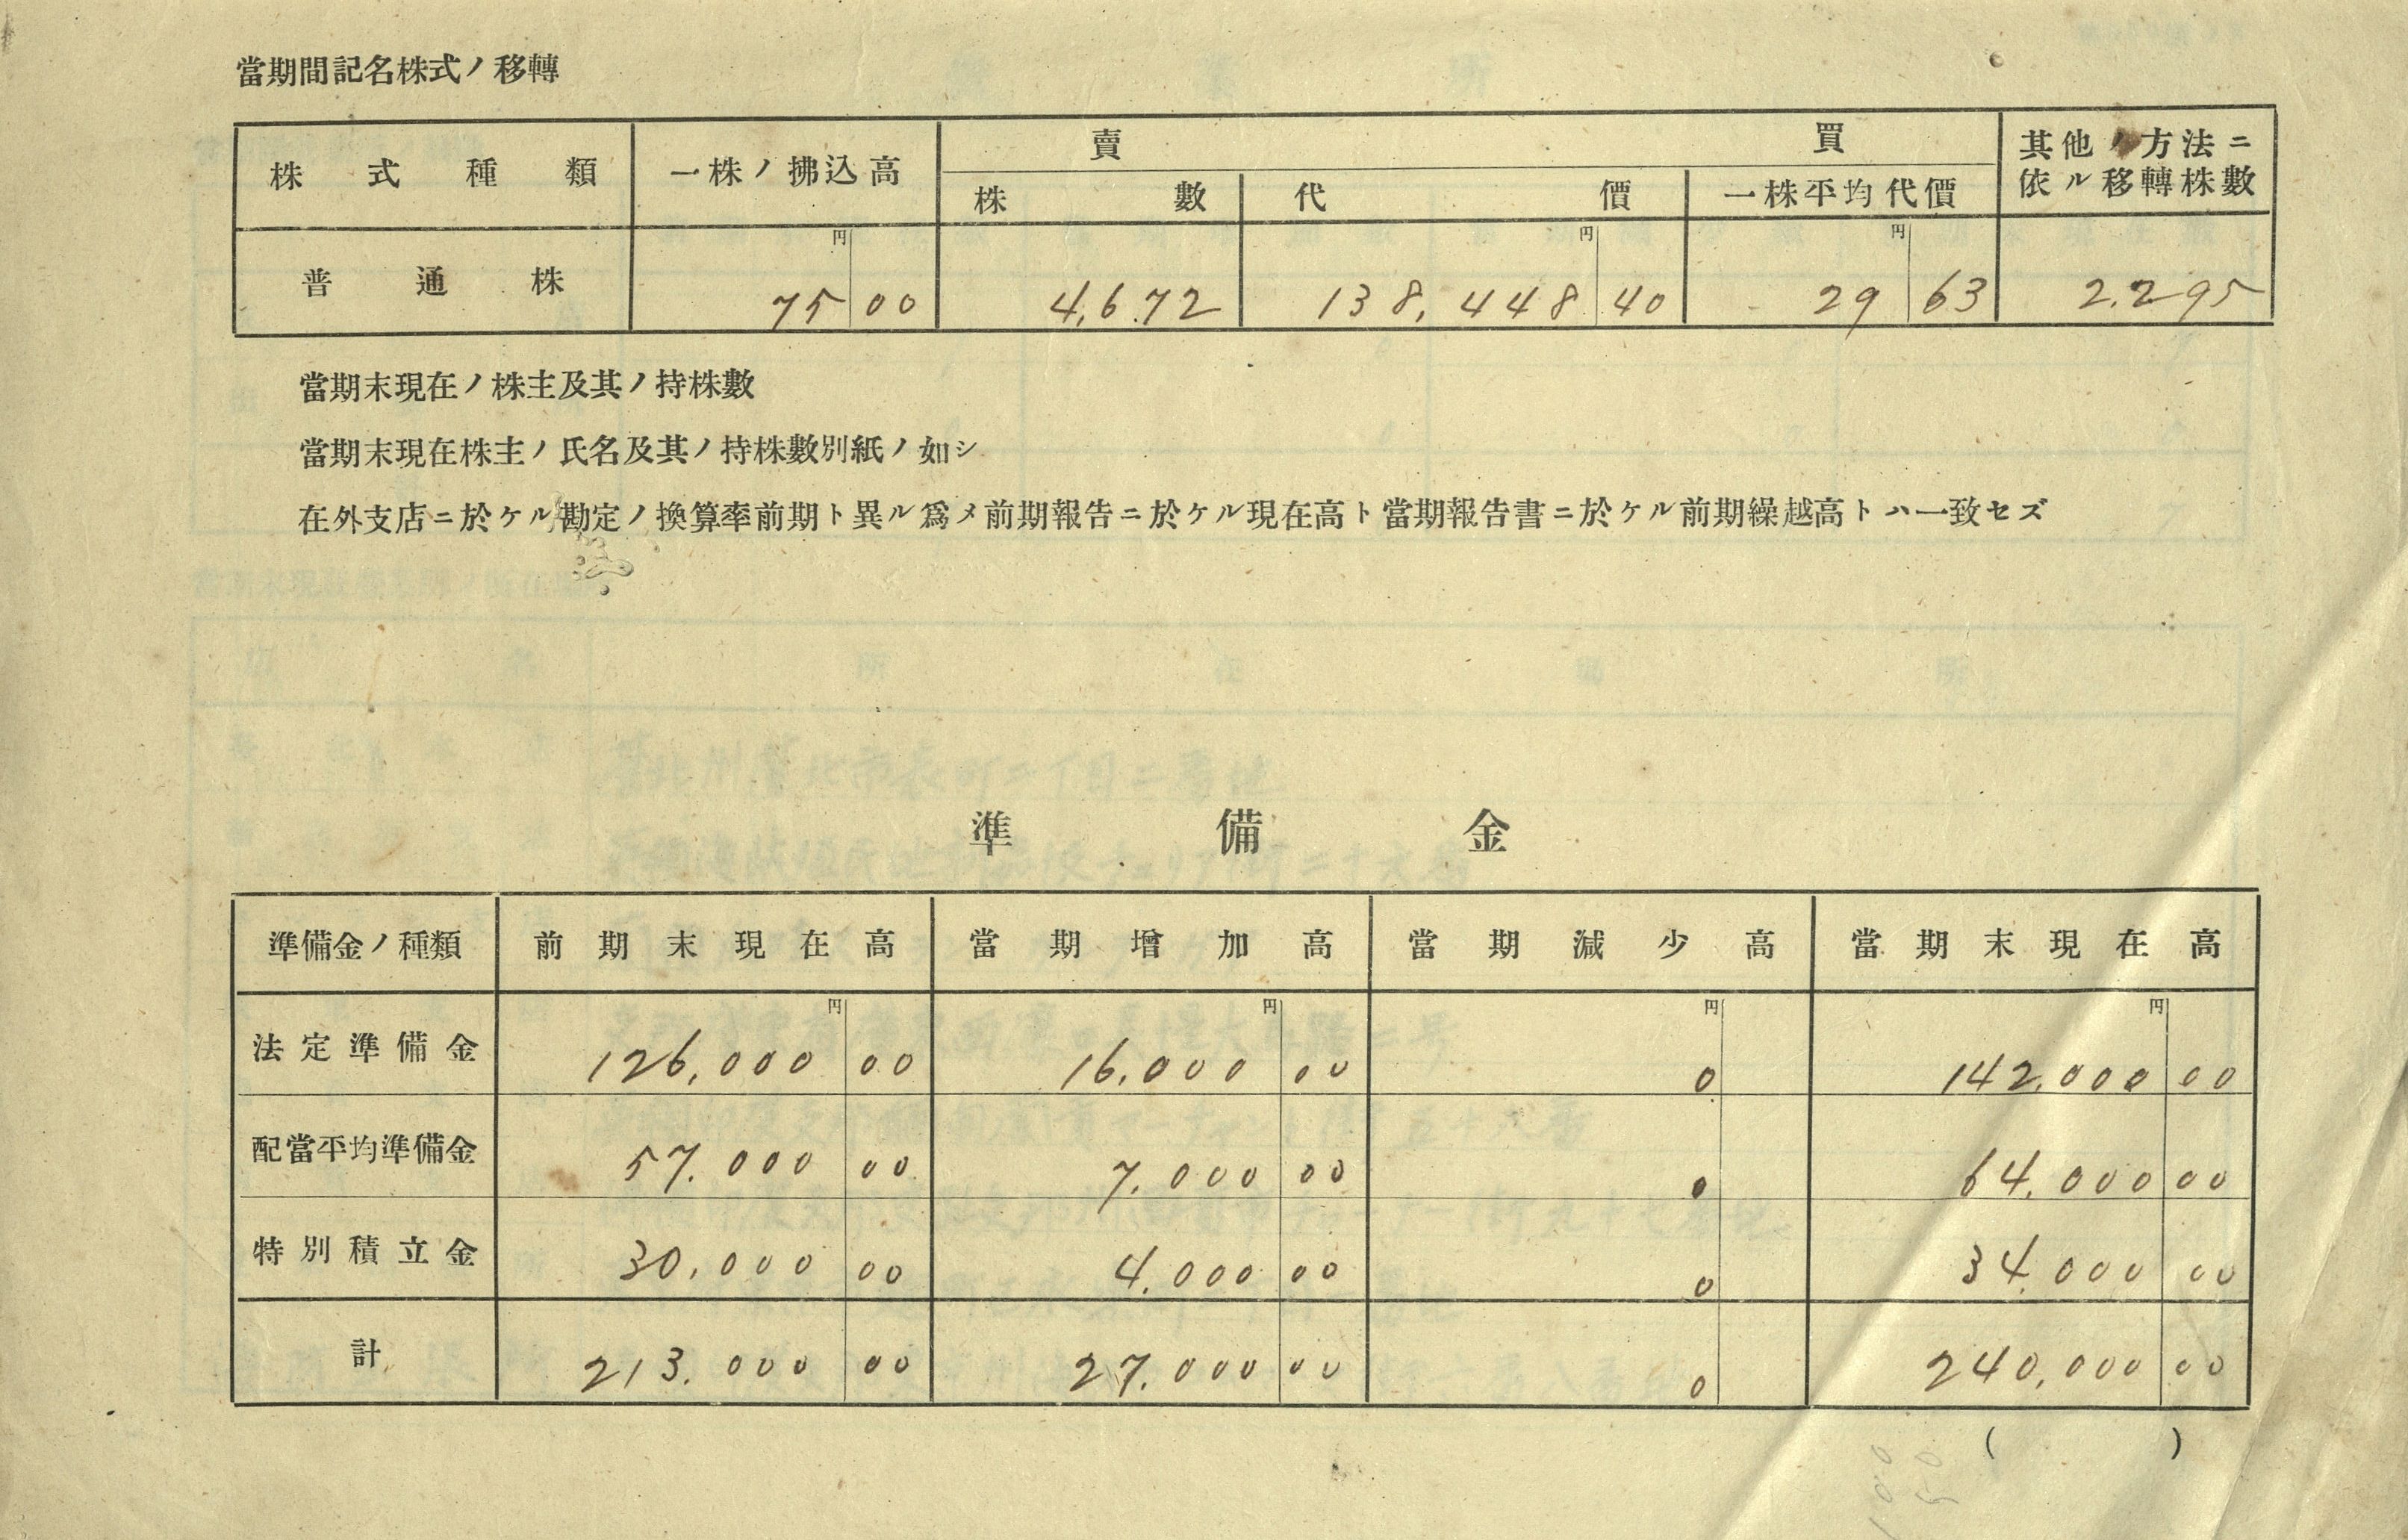 當期間記名株式ノ移轉
株式種類 一株ノ拂込高 賣買 其他ノ方法ニ依ル移轉株數
株數 代價 一株平均代價
円 円 円
普通株 75 00 4,672 138,448 40 29 63 2,295
當期末現在ノ株主及其ノ持株數
當期末現在株主ノ氏名及其ノ持株數別紙ノ如シ
在外支店ニ於ケル勘定ノ換算率前期ト異ル爲メ前期報告ニ於ケル現在高ト當期報告書ニ於ケル前期繰越高トハ一致セズ
準備金
準備金ノ種類 前期末現在高 當期增加高 當期減少高 當期末現在高
円 円 円 円
法定準備金 126,000 00 16,000 00 0 142,000 00
配當平均準備金 57,000 00 7,000 00 0 64,000 00
特別積立金 30,000 00 4,000 00 0 34,000 00
計 213,000 00 27,000 00 0 240,000 00
( )